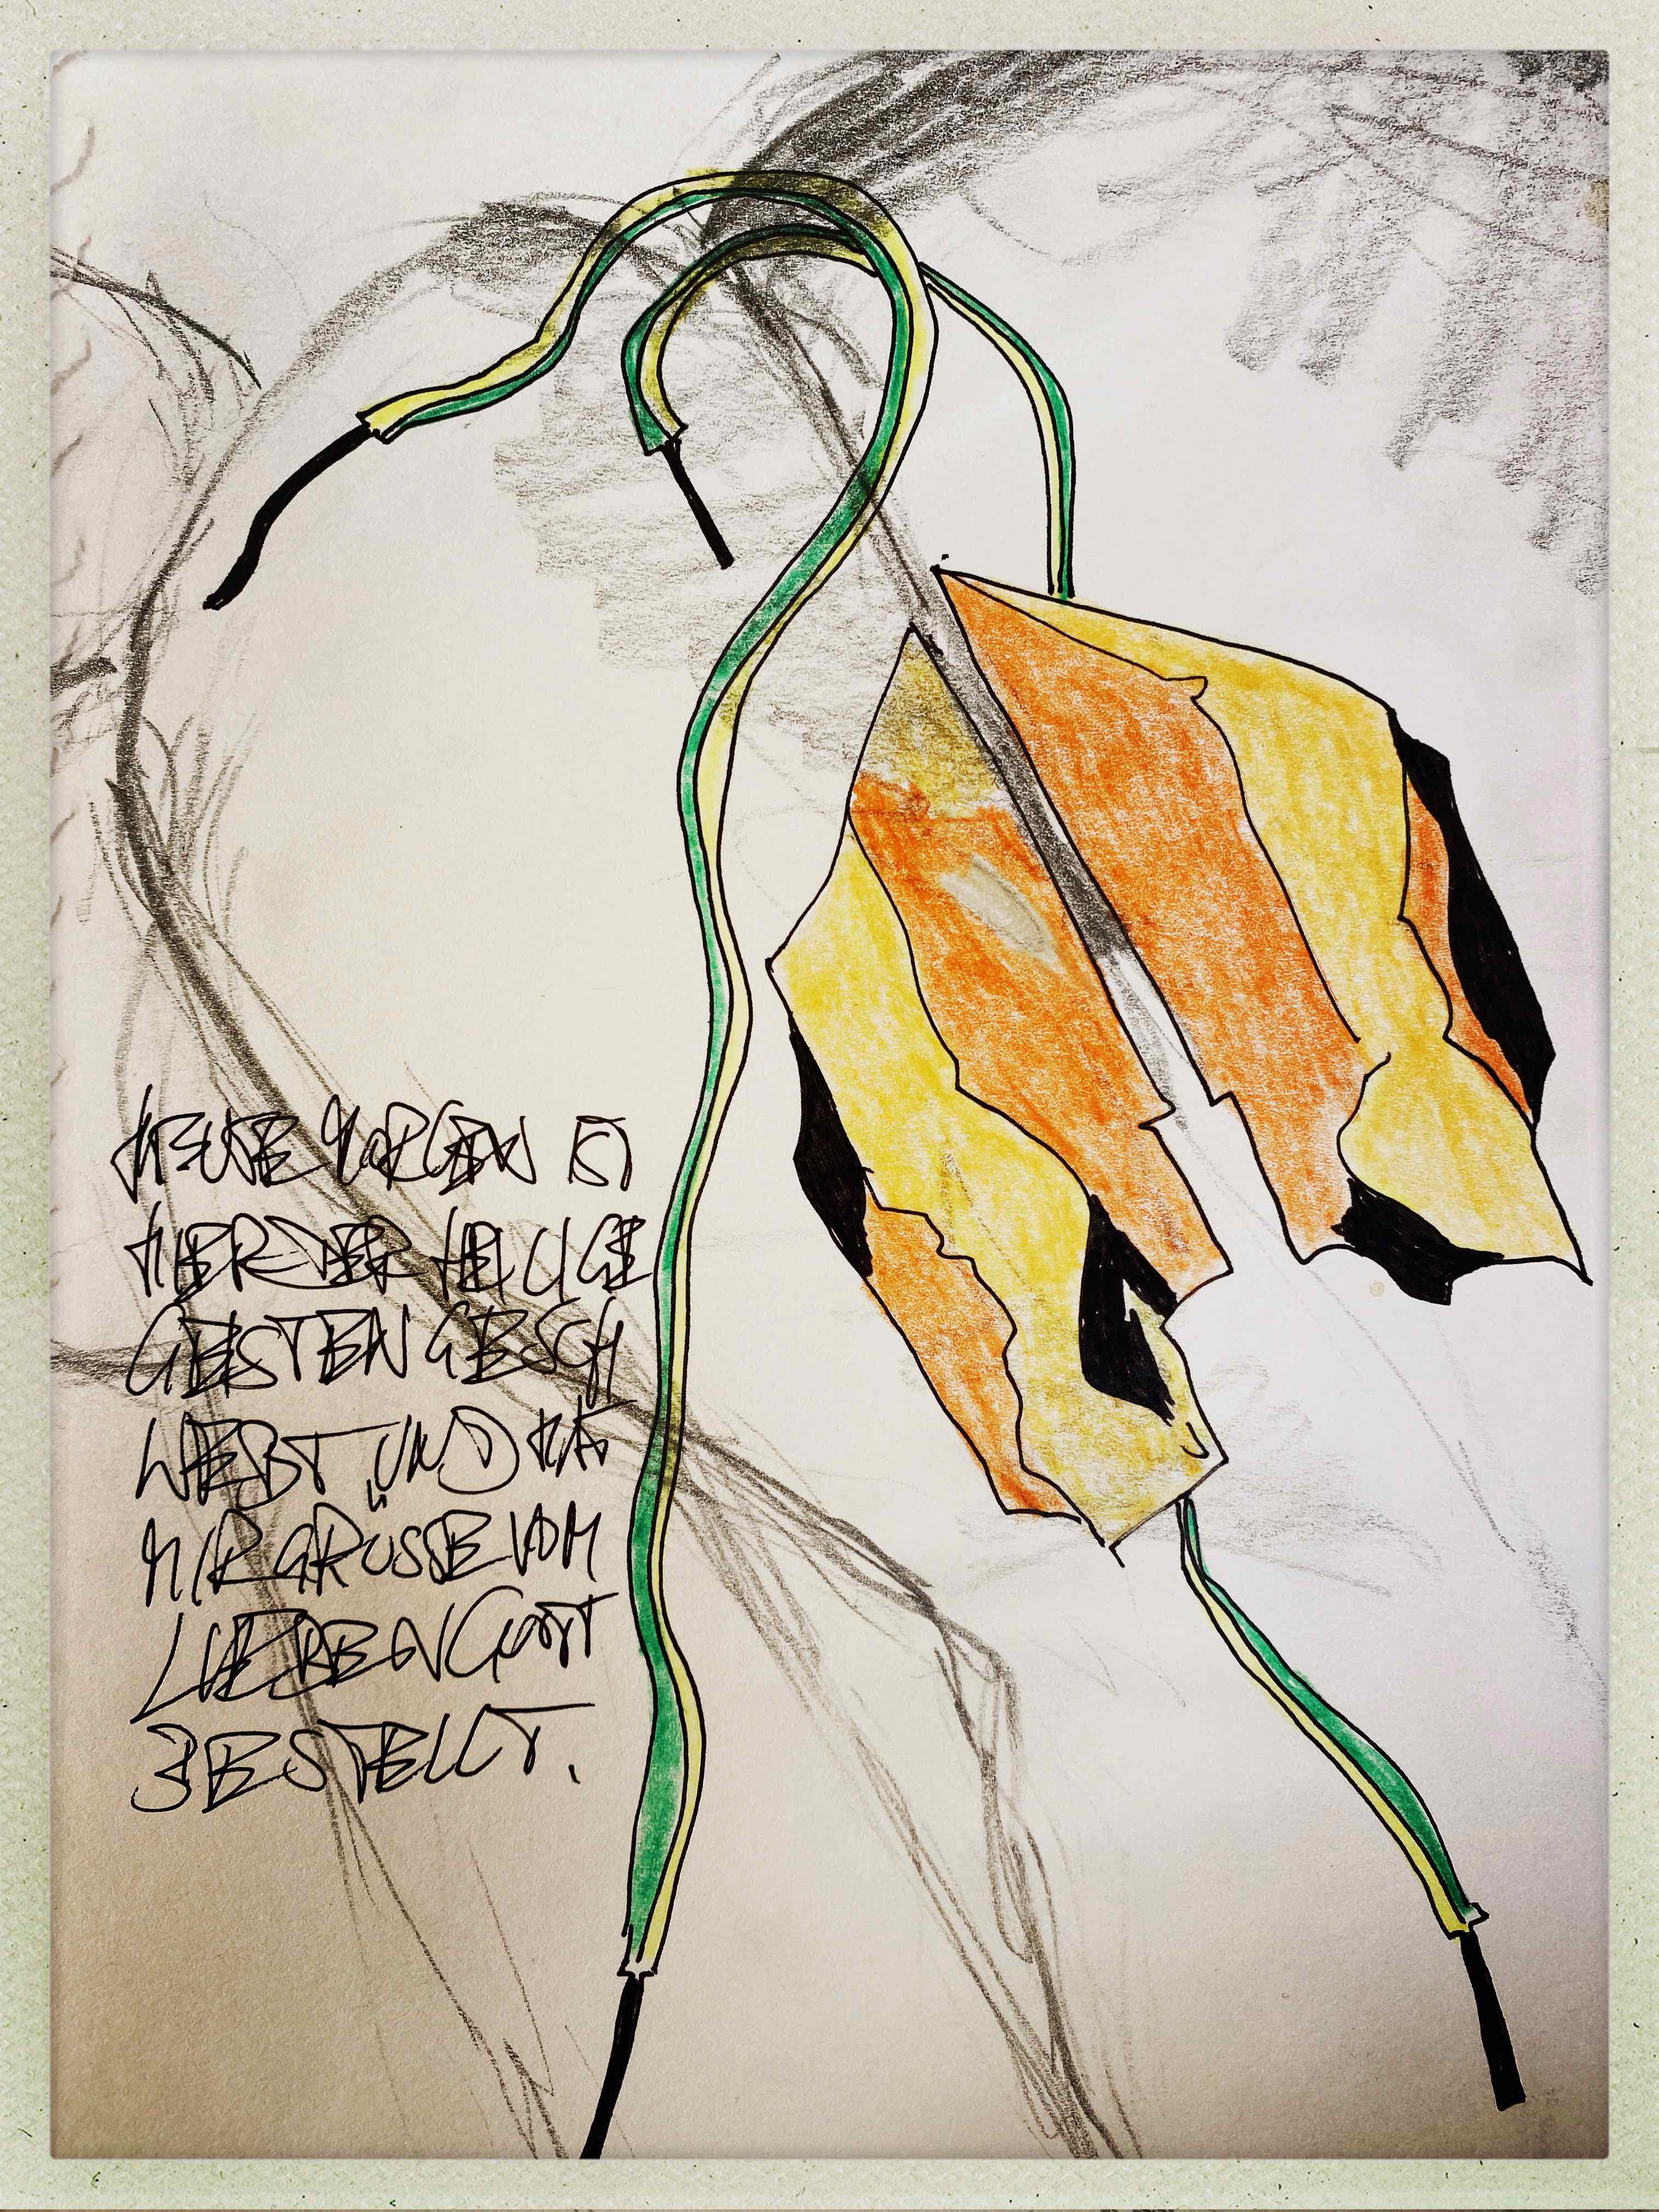 HEUTE MORGEN IST
HIER DER HEILIGE
GEIST EINGESCH
WEBT UND HAT
MIR GRÜSSE VOM
LIEBEN GOTT
BESTELLT.